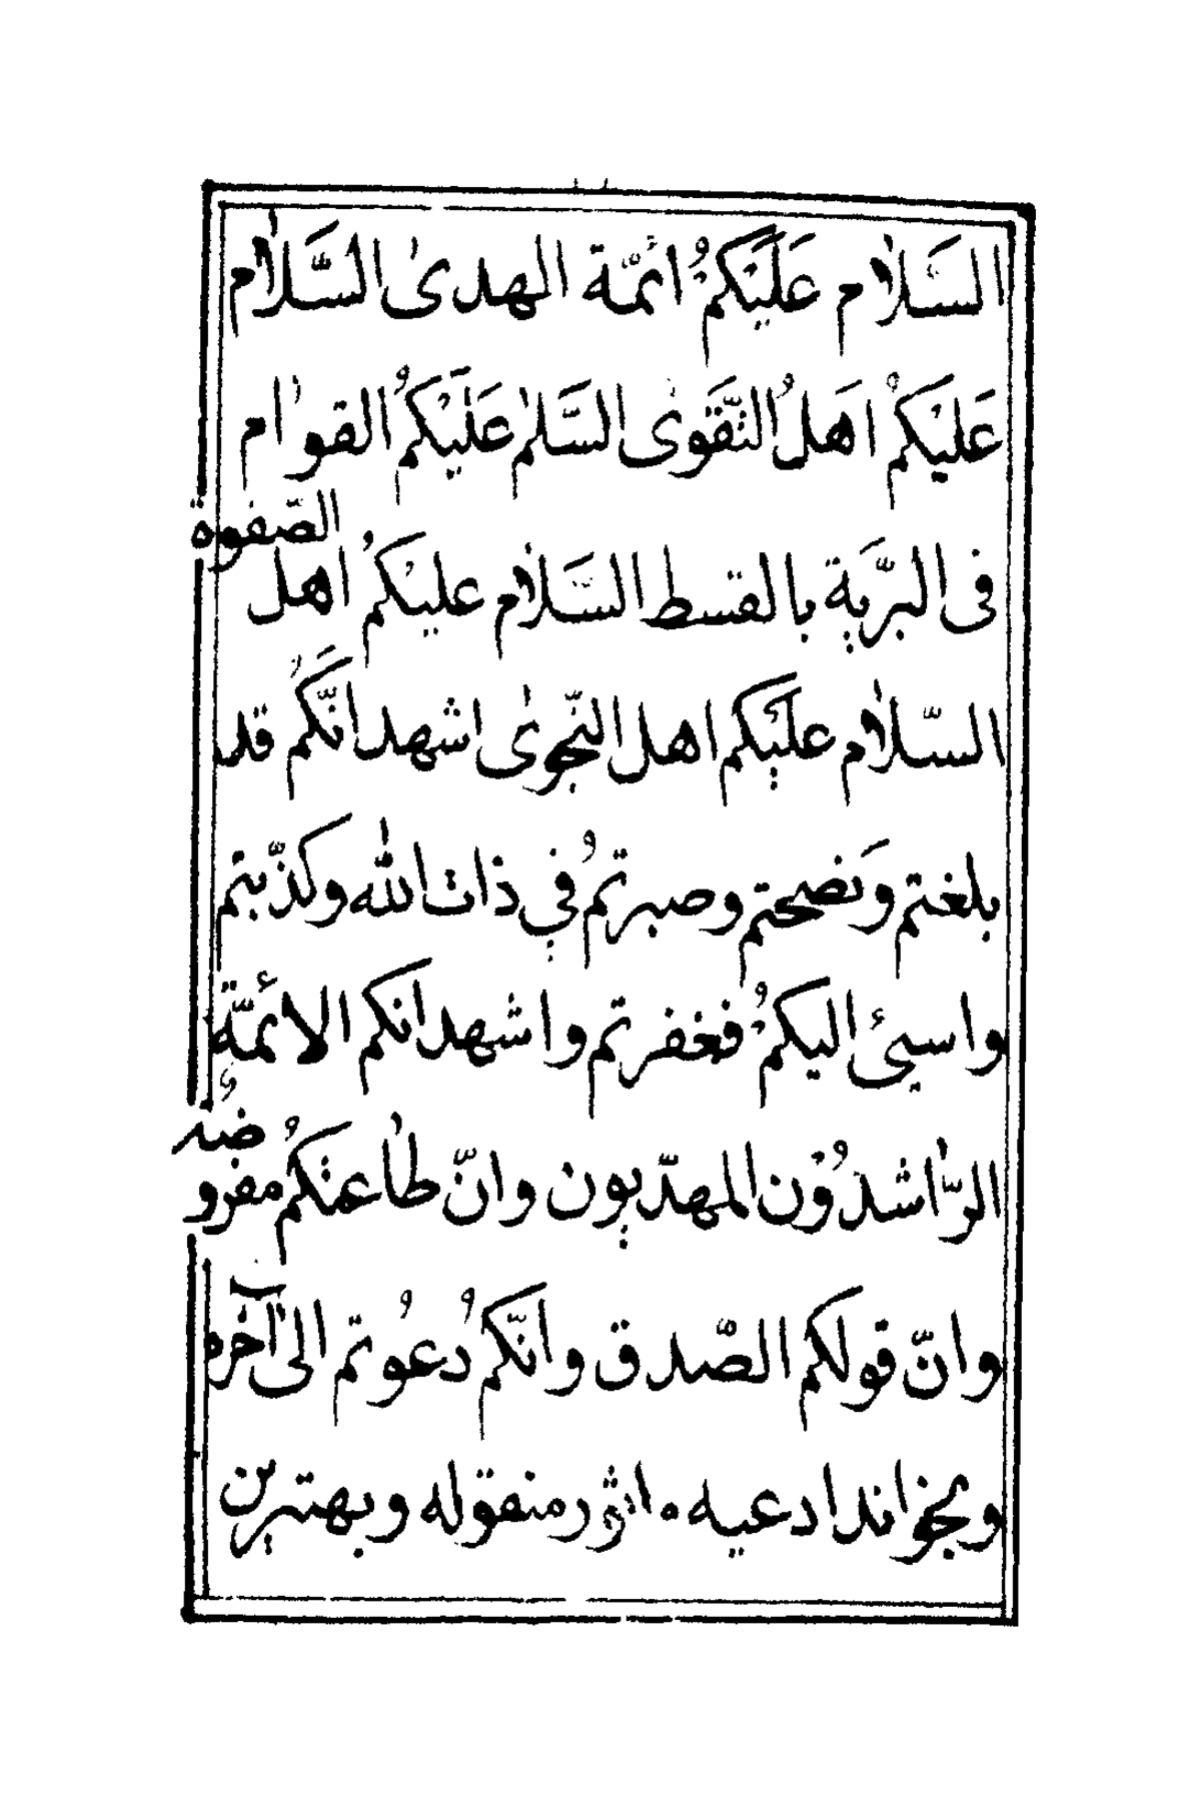 السَّلام عَلَيْكُمْ ائمّة الهدىٰ السَّلام
عَلَيْكُمْ اَهَلُ التَّقَوىٰ السَّلٰم عَلَيْكُمُ القوٰام
فى البرَّية بالقسط السَّلام عليْكُم اهل الصّفوة
السّلام عليْكم اهل النّجوىٰ اشهد انَّكُم قد
بلغتم وَنصحتم وصبرتمُ في ذات الله وكذّبتم
واسيئ اليكمُ فغفرتم واشهد انكم الائمّة
الرّاشدُوْن المهدّيون وانّ طٰاعتكُم مفروضُة
وانّ قولكم الصّدق وانّكم دُعوُتم الىٰ آخره
وبخواند ادعيه ماثور منقوله وبهترين